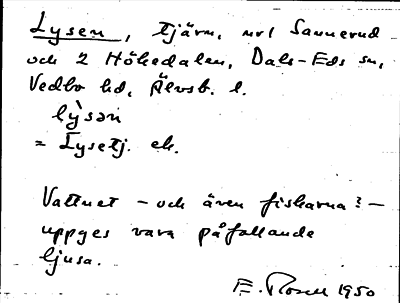 Lysen, tjärn, mrl Sannerud
och 2 Hökedalen, Dals-Eds sn,
Vedbo hd, Älvsb. l.
lỳsən
= Lysetj. ek.
Vattnet - och även fiskarna? -
uppges vara påfallande
ljusa.
E. Rosell 1950